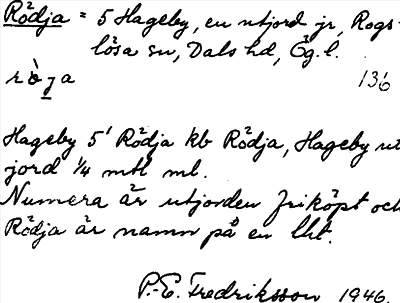 Rödja = 5 Hageby, en utjord jr, Rogs-
lösa sn, Dals hd, Ög. l.
röja 136
Hageby 5' Rödja kb Rödja, Hageby ut
jord 1/4 mtl ml.
Numera är utjorden friköpt och
Rödja är namn på en lht.
P.-E. Fredriksson 1946.